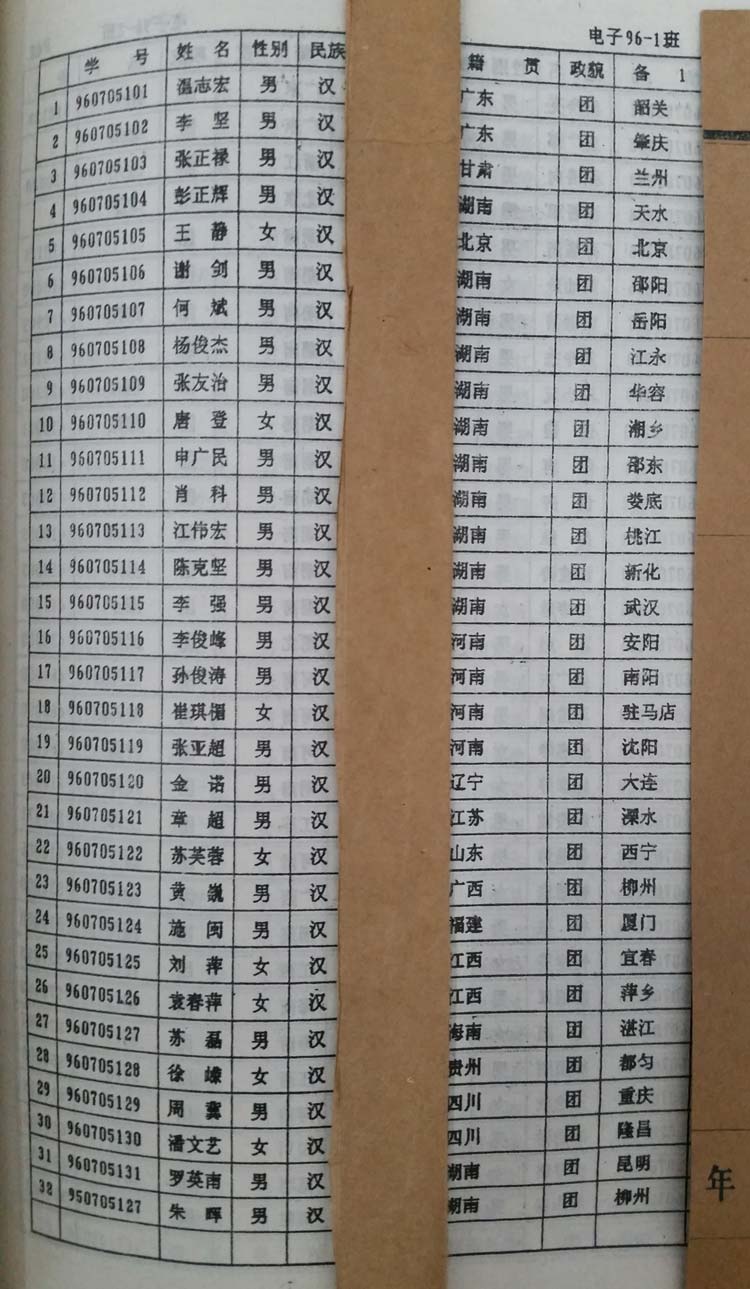 电子96-1班
学 号 姓 名 性别 民族 籍 贯 政貌 备 1
1 960705101 温志宏 男 汉 广东 团 韶关
2 960705102 李 坚 男 汉 广东 团 肇庆
3 960705103 张正禄 男 汉 甘肃 团 兰州
4 960705104 彭正辉 男 汉 湖南 团 天水
5 960705105 王 静 女 汉 北京 团 北京
6 960705106 谢 剑 男 汉 湖南 团 邵阳
7 960705107 何 斌 男 汉 湖南 团 岳阳
8 960705108 杨俊杰 男 汉 湖南 团 江永
9 960705109 张友治 男 汉 湖南 团 华容
10 960705110 唐 登 女 汉 湖南 团 湘乡
11 960705111 申广民 男 汉 湖南 团 邵东
12 960705112 肖 科 男 汉 湖南 团 娄底
13 960705113 江伟宏 男 汉 湖南 团 桃江
14 960705114 陈克坚 男 汉 湖南 团 新化
15 960705115 李 强 男 汉 湖南 团 武汉
16 960705116 李俊峰 男 汉 河南 团 安阳
17 960705117 孙俊涛 男 汉 河南 团 南阳
18 960705118 崔琪 女 汉 河南 团 驻马店
19 960705119 张亚超 男 汉 河南 团 沈阳
20 960705120 金 诺 男 汉 辽宁 团 大连
21 960705121 章 超 男 汉 江苏 团 溧水
22 960705122 苏芙蓉 女 汉 山东 团 西宁
23 960705123 黄 巍 男 汉 广西 团 柳州
24 960705124 施 闽 男 汉 福建 团 厦门
25 960705125 刘 萍 女 汉 江西 团 宜春
26 960705126 袁春萍 女 汉 江西 团 萍乡
27 960705127 苏 磊 男 汉 海南 团 湛江
28 960705128 徐 嵘 女 汉 贵州 团 都匀
29 960705129 周 冀 男 汉 四川 团 重庆
30 960705130 潘文艺 女 汉 四川 团 隆昌
31 960705131 罗英南 男 汉 湖南 团 昆明
32 950705127 朱 晖 男 汉 湖南 团 柳州
年